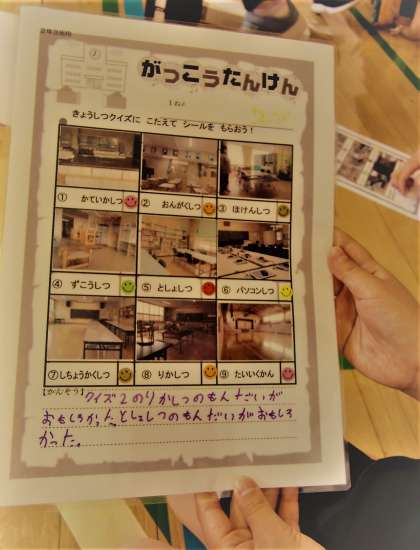 がっこうたんけん
1ねん
きょうしつクイズに こたえて シールを もらおう！
① かていかしつ
② おんがくしつ
③ ほけんしつ
④ ずこうしつ
⑤ としょしつ
⑥ パソコンしつ
⑦しちょうかくしつ
⑧ りかしつ
⑨ たいいくかん
【かんそう】
クイズ2のりかしつのもんだいが
おもしろかったとしょしつのもんだいがおもしろ
かった。